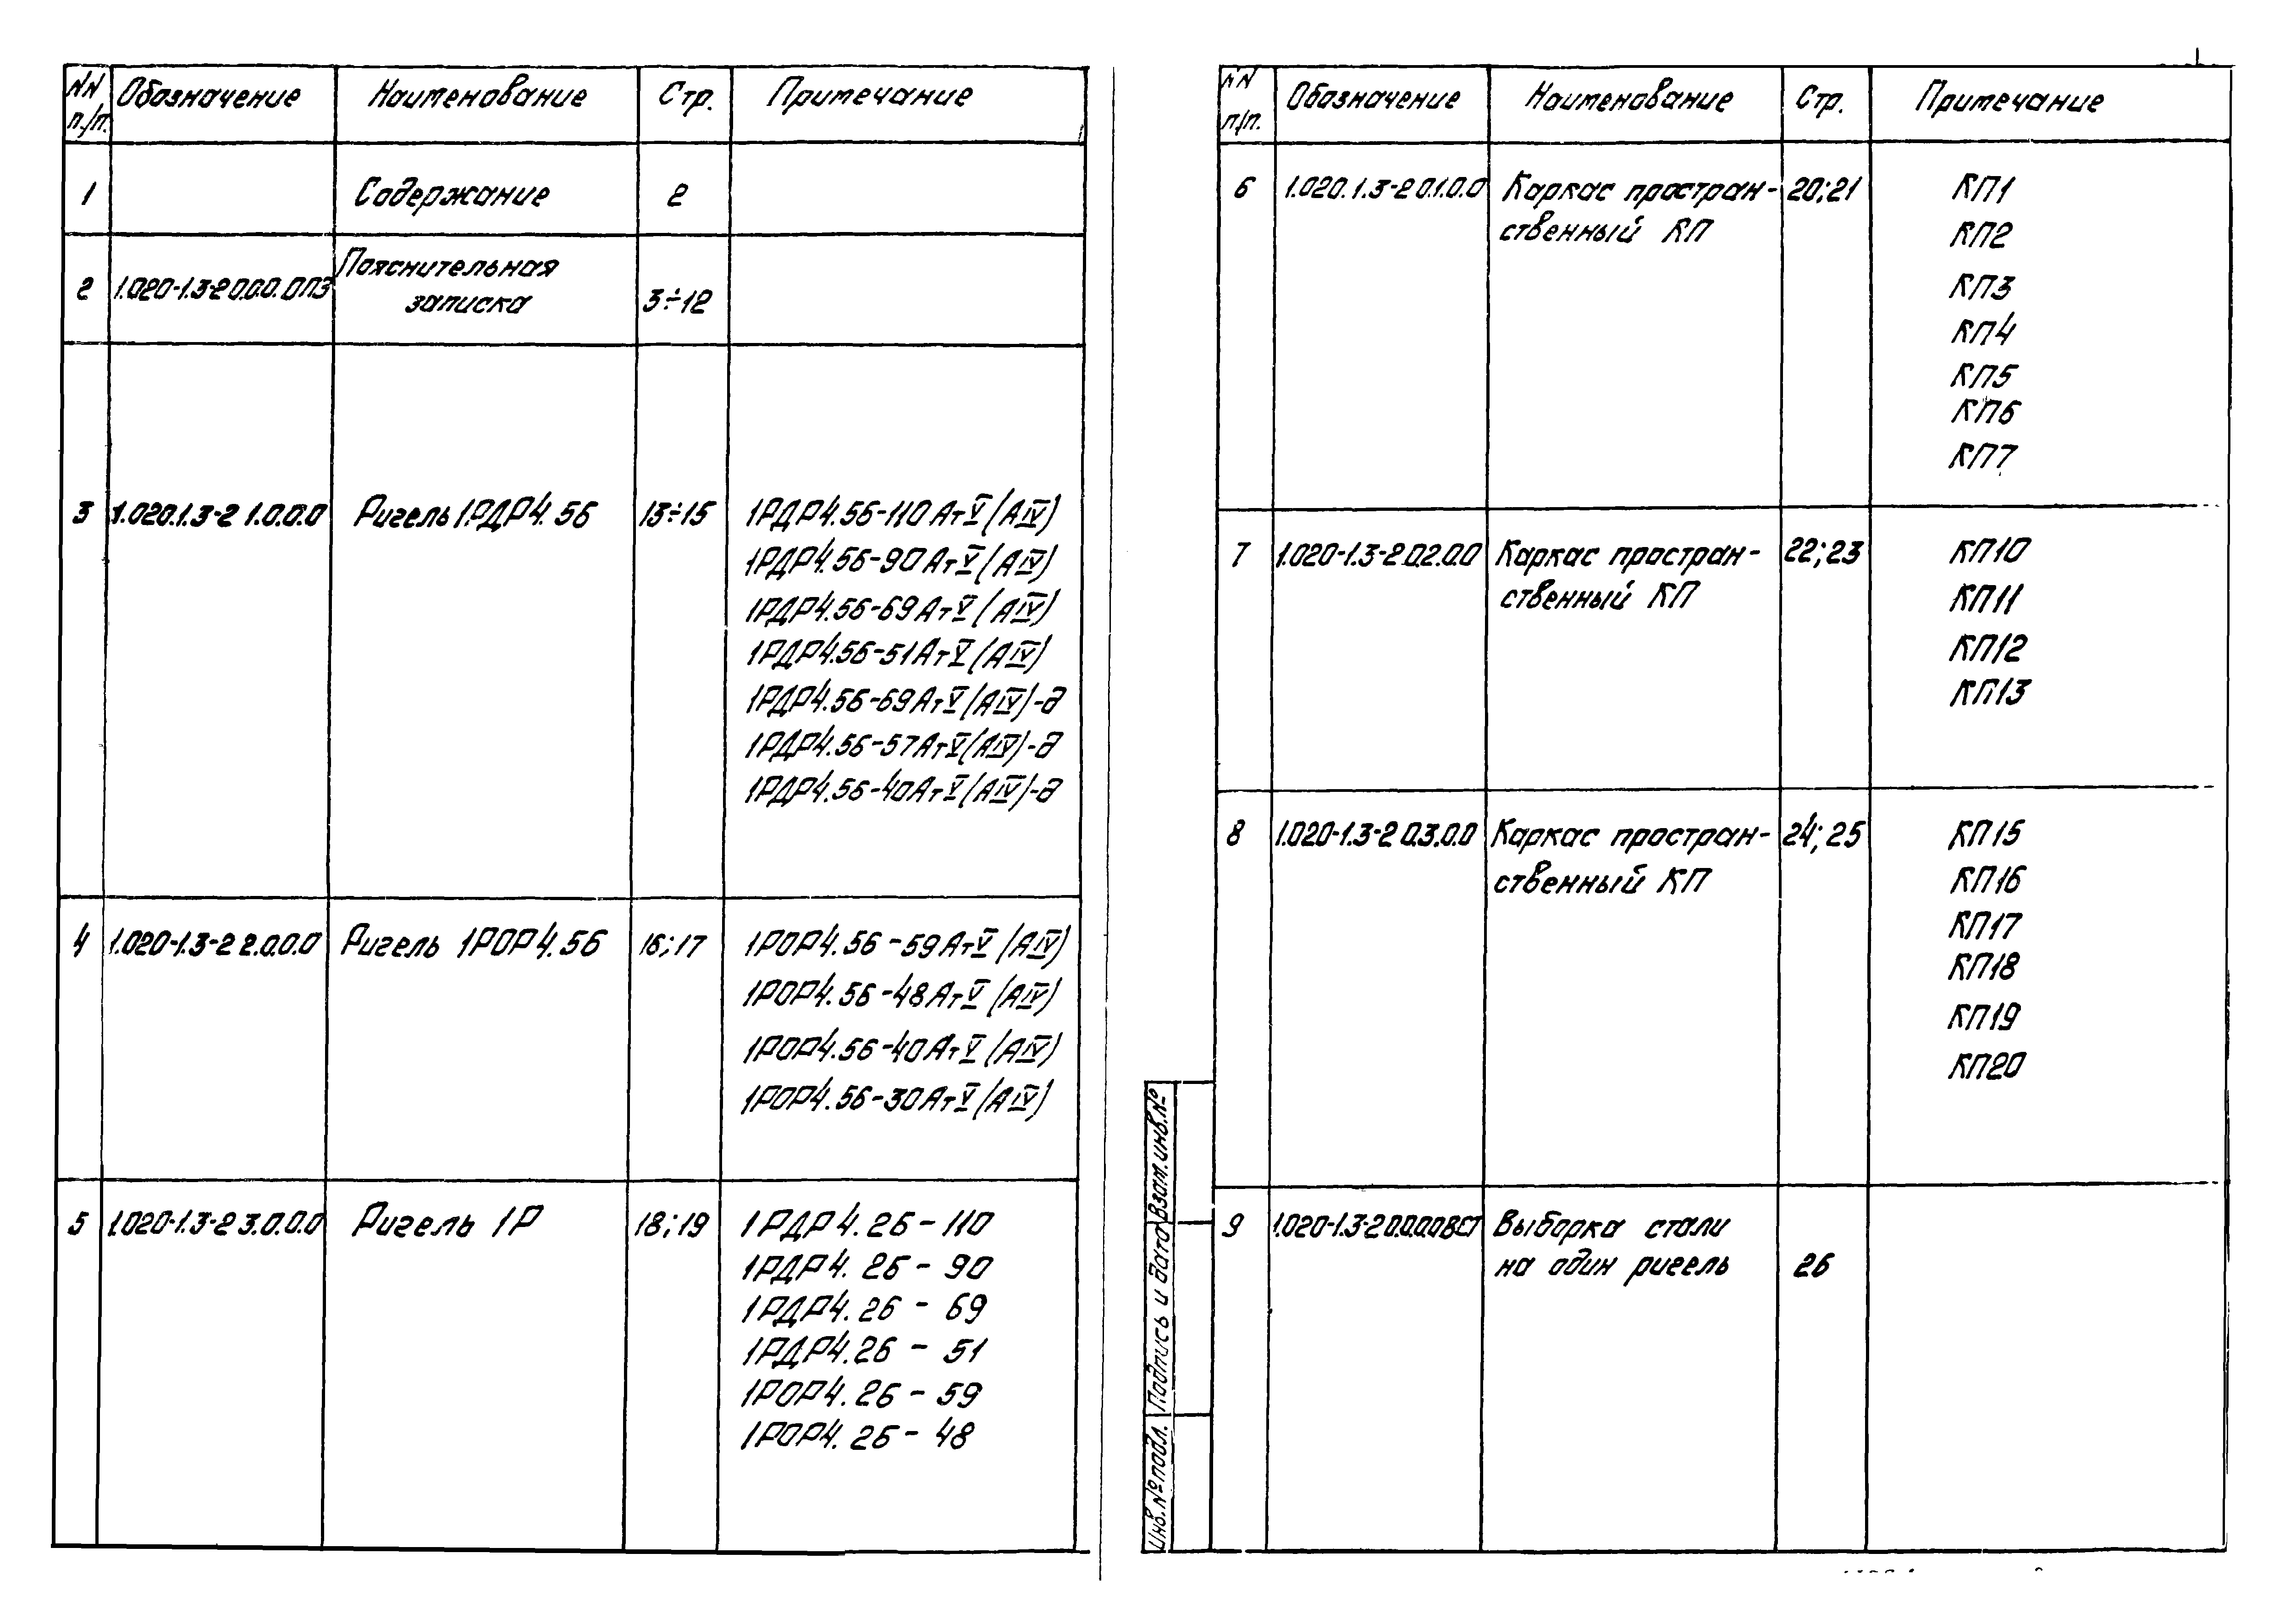 NN п./п. Обозначение Наименование Стр. Примечание
1 Содержание 2
2 1.020-1.3-2 0.0.0.0ПЗ Пояснительная записка 3÷12
3 1.020.1.3-2 1.0.0.0 Ригель 1РДР4.56 13÷15 1РДР4.56-110АтV(АIV)
1РДР4.56-90АтV(АIV)
1РДР4.56-69АтV(АIV)
1РДР4.56-51АтV(АIV)
1РДР4.56-69АтV(АIV)-д
1РДР4.56-57АтV(АIV)-д
1РДР4.56-40АтV(АIV)-д
4 1.020-1.3-2 2.0.0.0 Ригель 1РОР4.56 16;17 1РОР4.56-59АтV(АIV)
1РОР4.56-48АтV(АIV)
1РОР4.56-40АтV(АIV)
1РОР4.56-30АтV(АIV)
5 1.020-1.3-2 3.0.0.0 Ригель 1Р 18;19 1РДР4.26-110
1РДР4.26-90
1РДР4.26-69
1РДР4.26-51
1РОР4.26-59
1РОР4.26-48
NN п/п. Обозначение Наименование Стр. Примечание
6 1.020.1.3-2 0.1.0.0 Каркас простран- 20;21 КП1
ственный КП КП2
КП3
КП4
КП5
КП6
КП7
7 1.020-1.3-2 0.2.0.0 Каркас простран- 22;23 КП10
ственный КП КП11
КП12
КП13
8 1.020-1.3-2 0.3.0.0 Каркас простран- 24;25 КП15
ственный КП КП16
КП17
КП18
КП19
КП20
9 1.020-1.3-2 0.0.0.0ВСТ Выборка стали
на один ригель 26
Инв.№подл. Подпись и дата Взам.инв.№